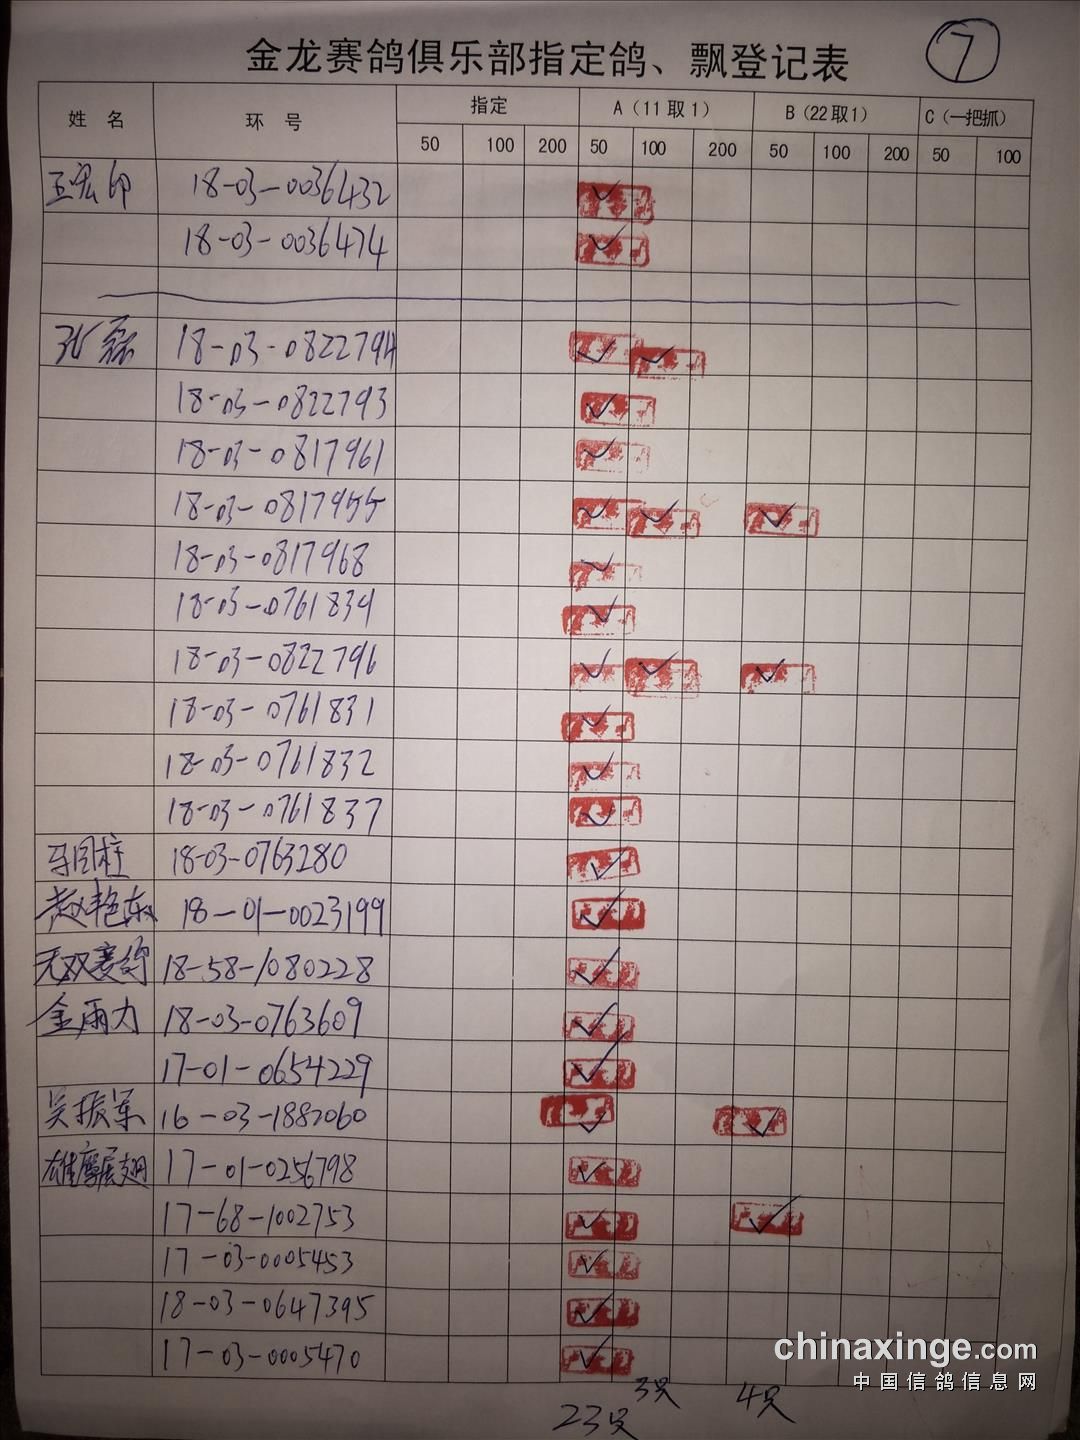 金龙赛鸽俱乐部指定鸽、飘登记表 7
姓 名 环 号 指定 A（11取1） B（22取1） C（一把抓）
50 100 200 50 100 200 50 100 200 50 100
王宏印 18-03-0036432
18-03-0036474
孔磊 18-03-0822794
18-03-0822793
18-03-0817961
18-03-0817955
18-03-0817968
18-03-0761834
18-03-0822796
18-03-0761831
18-03-0761832
18-03-0761837
马国柱 18-03-0763280
赵艳东 18-01-0023199
无双赛鸽 18-58-1080228
金雨力 18-03-0763609
17-01-0654229
吴振军 16-03-1882060
雄鹰展翅 17-01-0256798
17-68-1002753
17-03-0005453
18-03-0647395
17-03-0005470
23只 3只 4只
chinaxinge.com
中国信鸽信息网